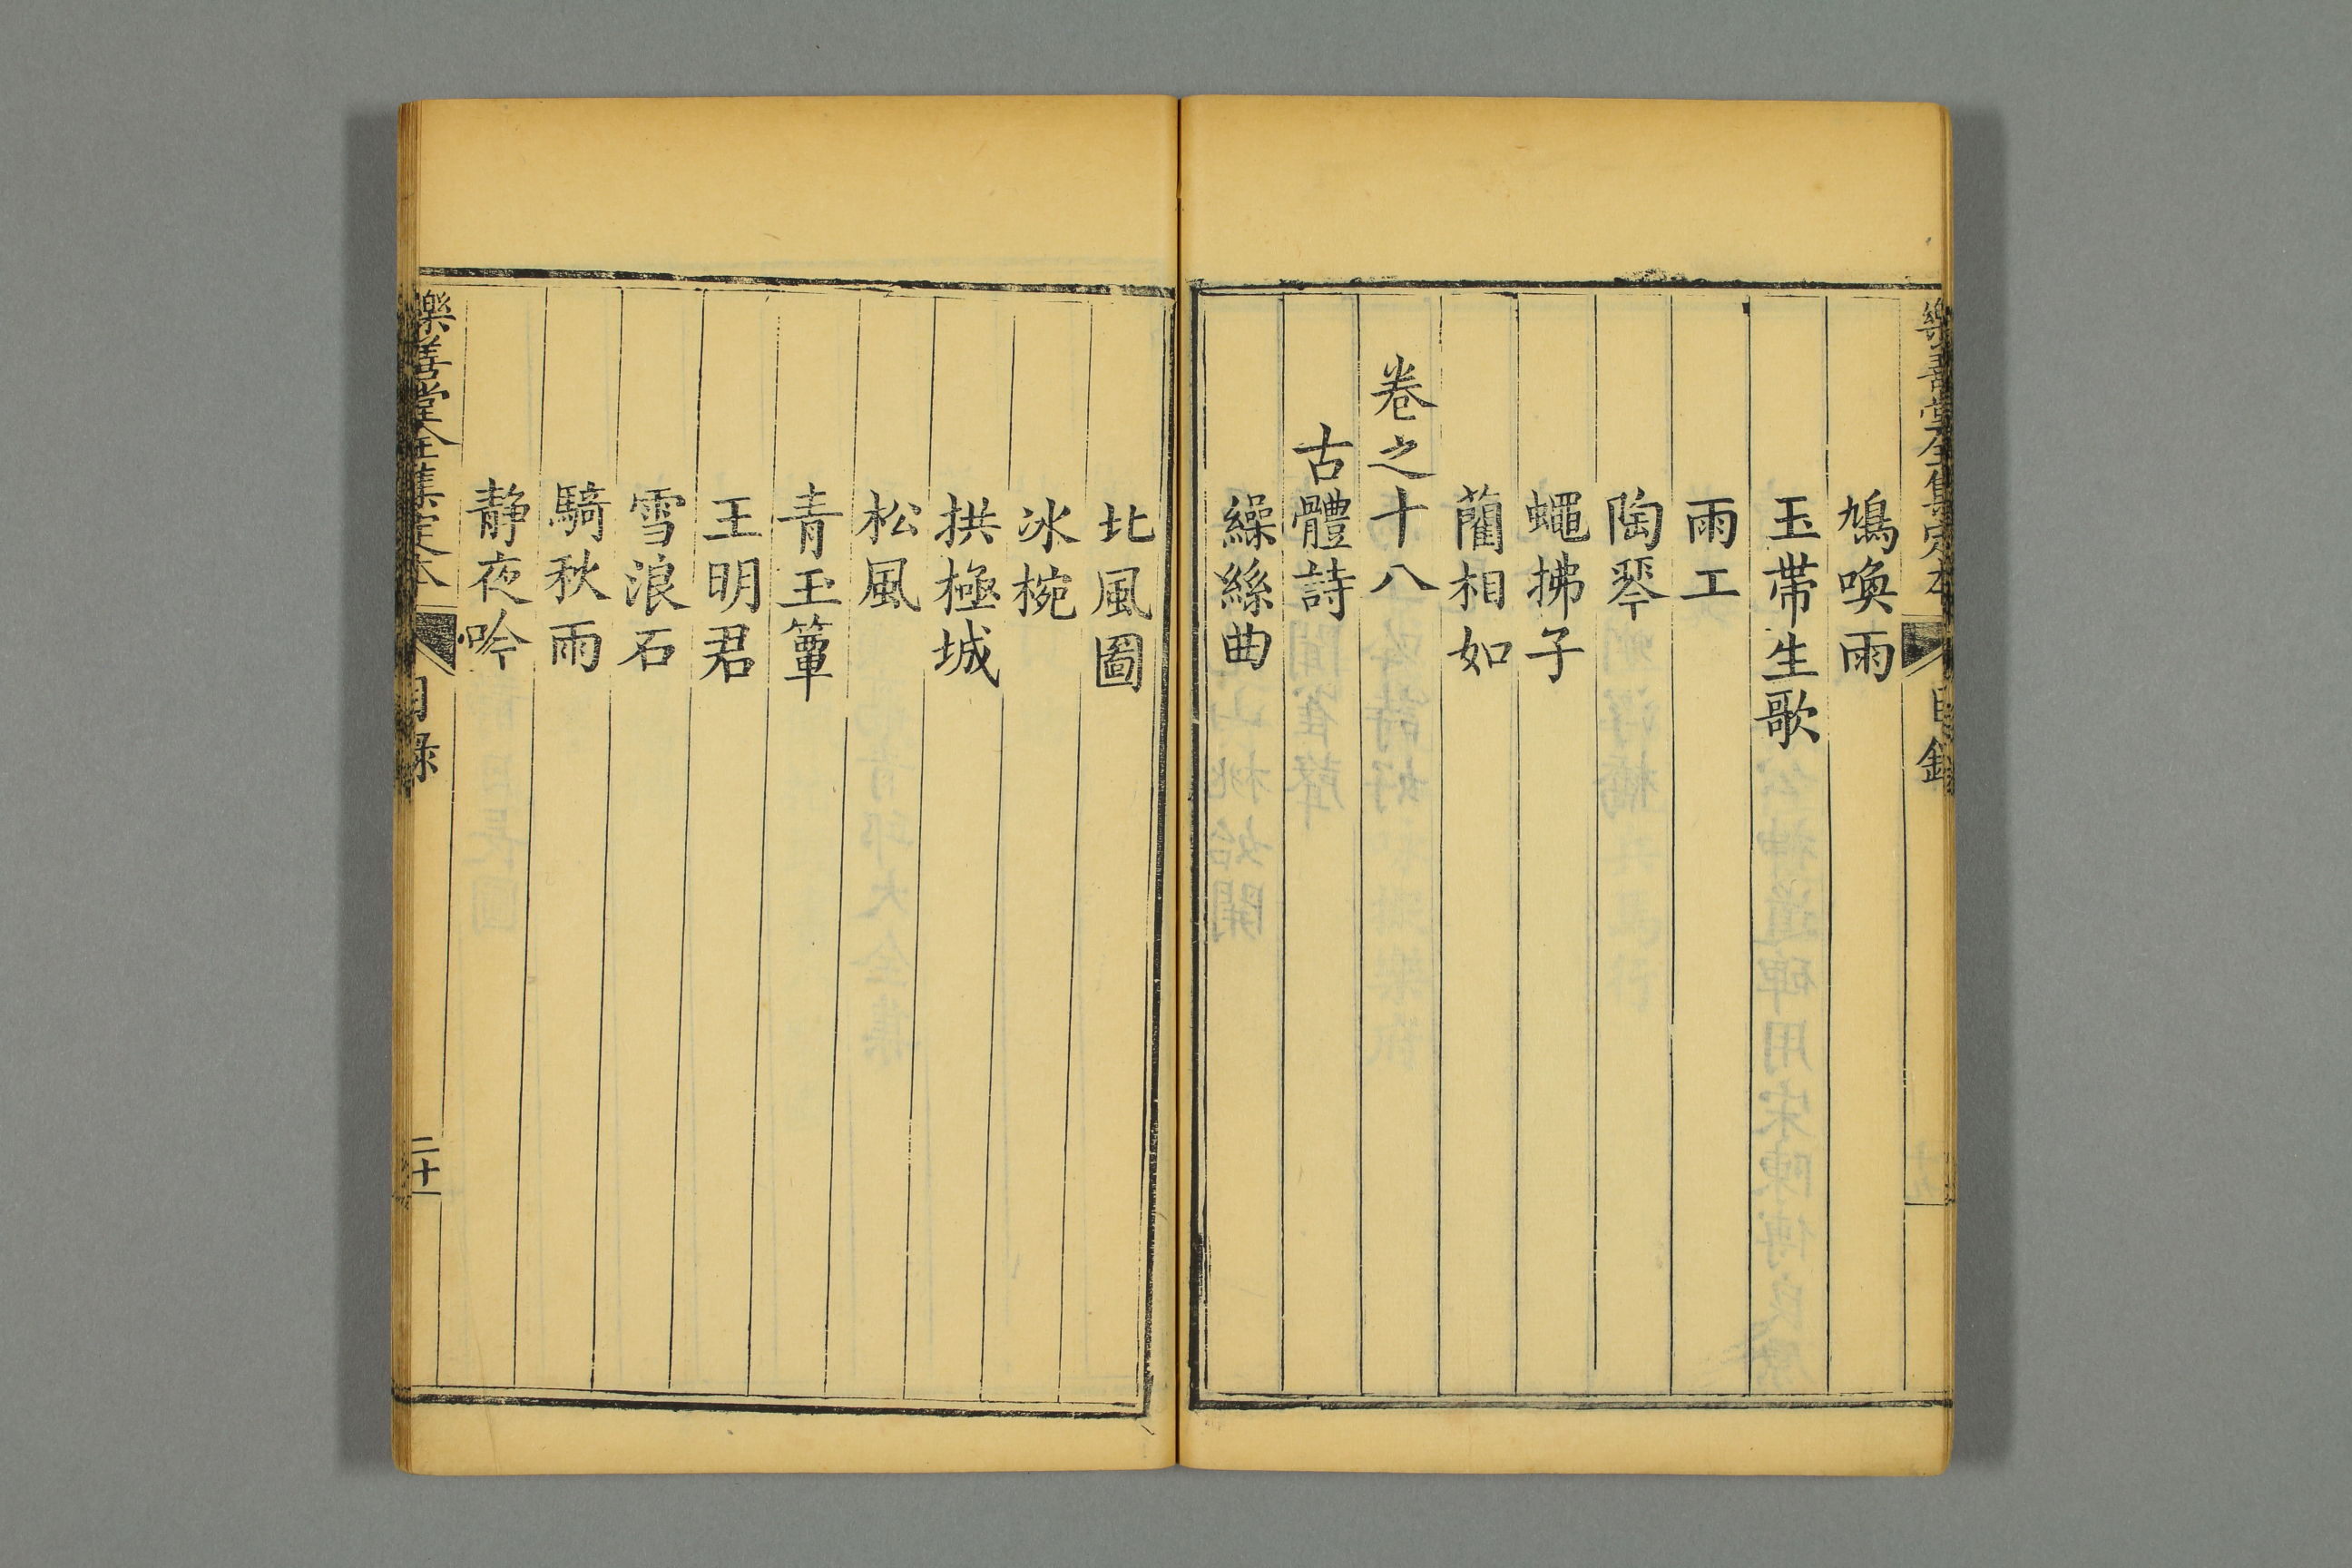 樂善堂全集定本
目錄
鳩喚雨
玉帶生歌
雨工
陶琴
蠅拂子
藺相如
卷之十八
古體詩
繰絲曲
北風圖
冰椀
拱極城
松風
青玉簟
王明君
雪浪石
騎秋雨
靜夜吟
樂善堂全集定本
目錄
二十